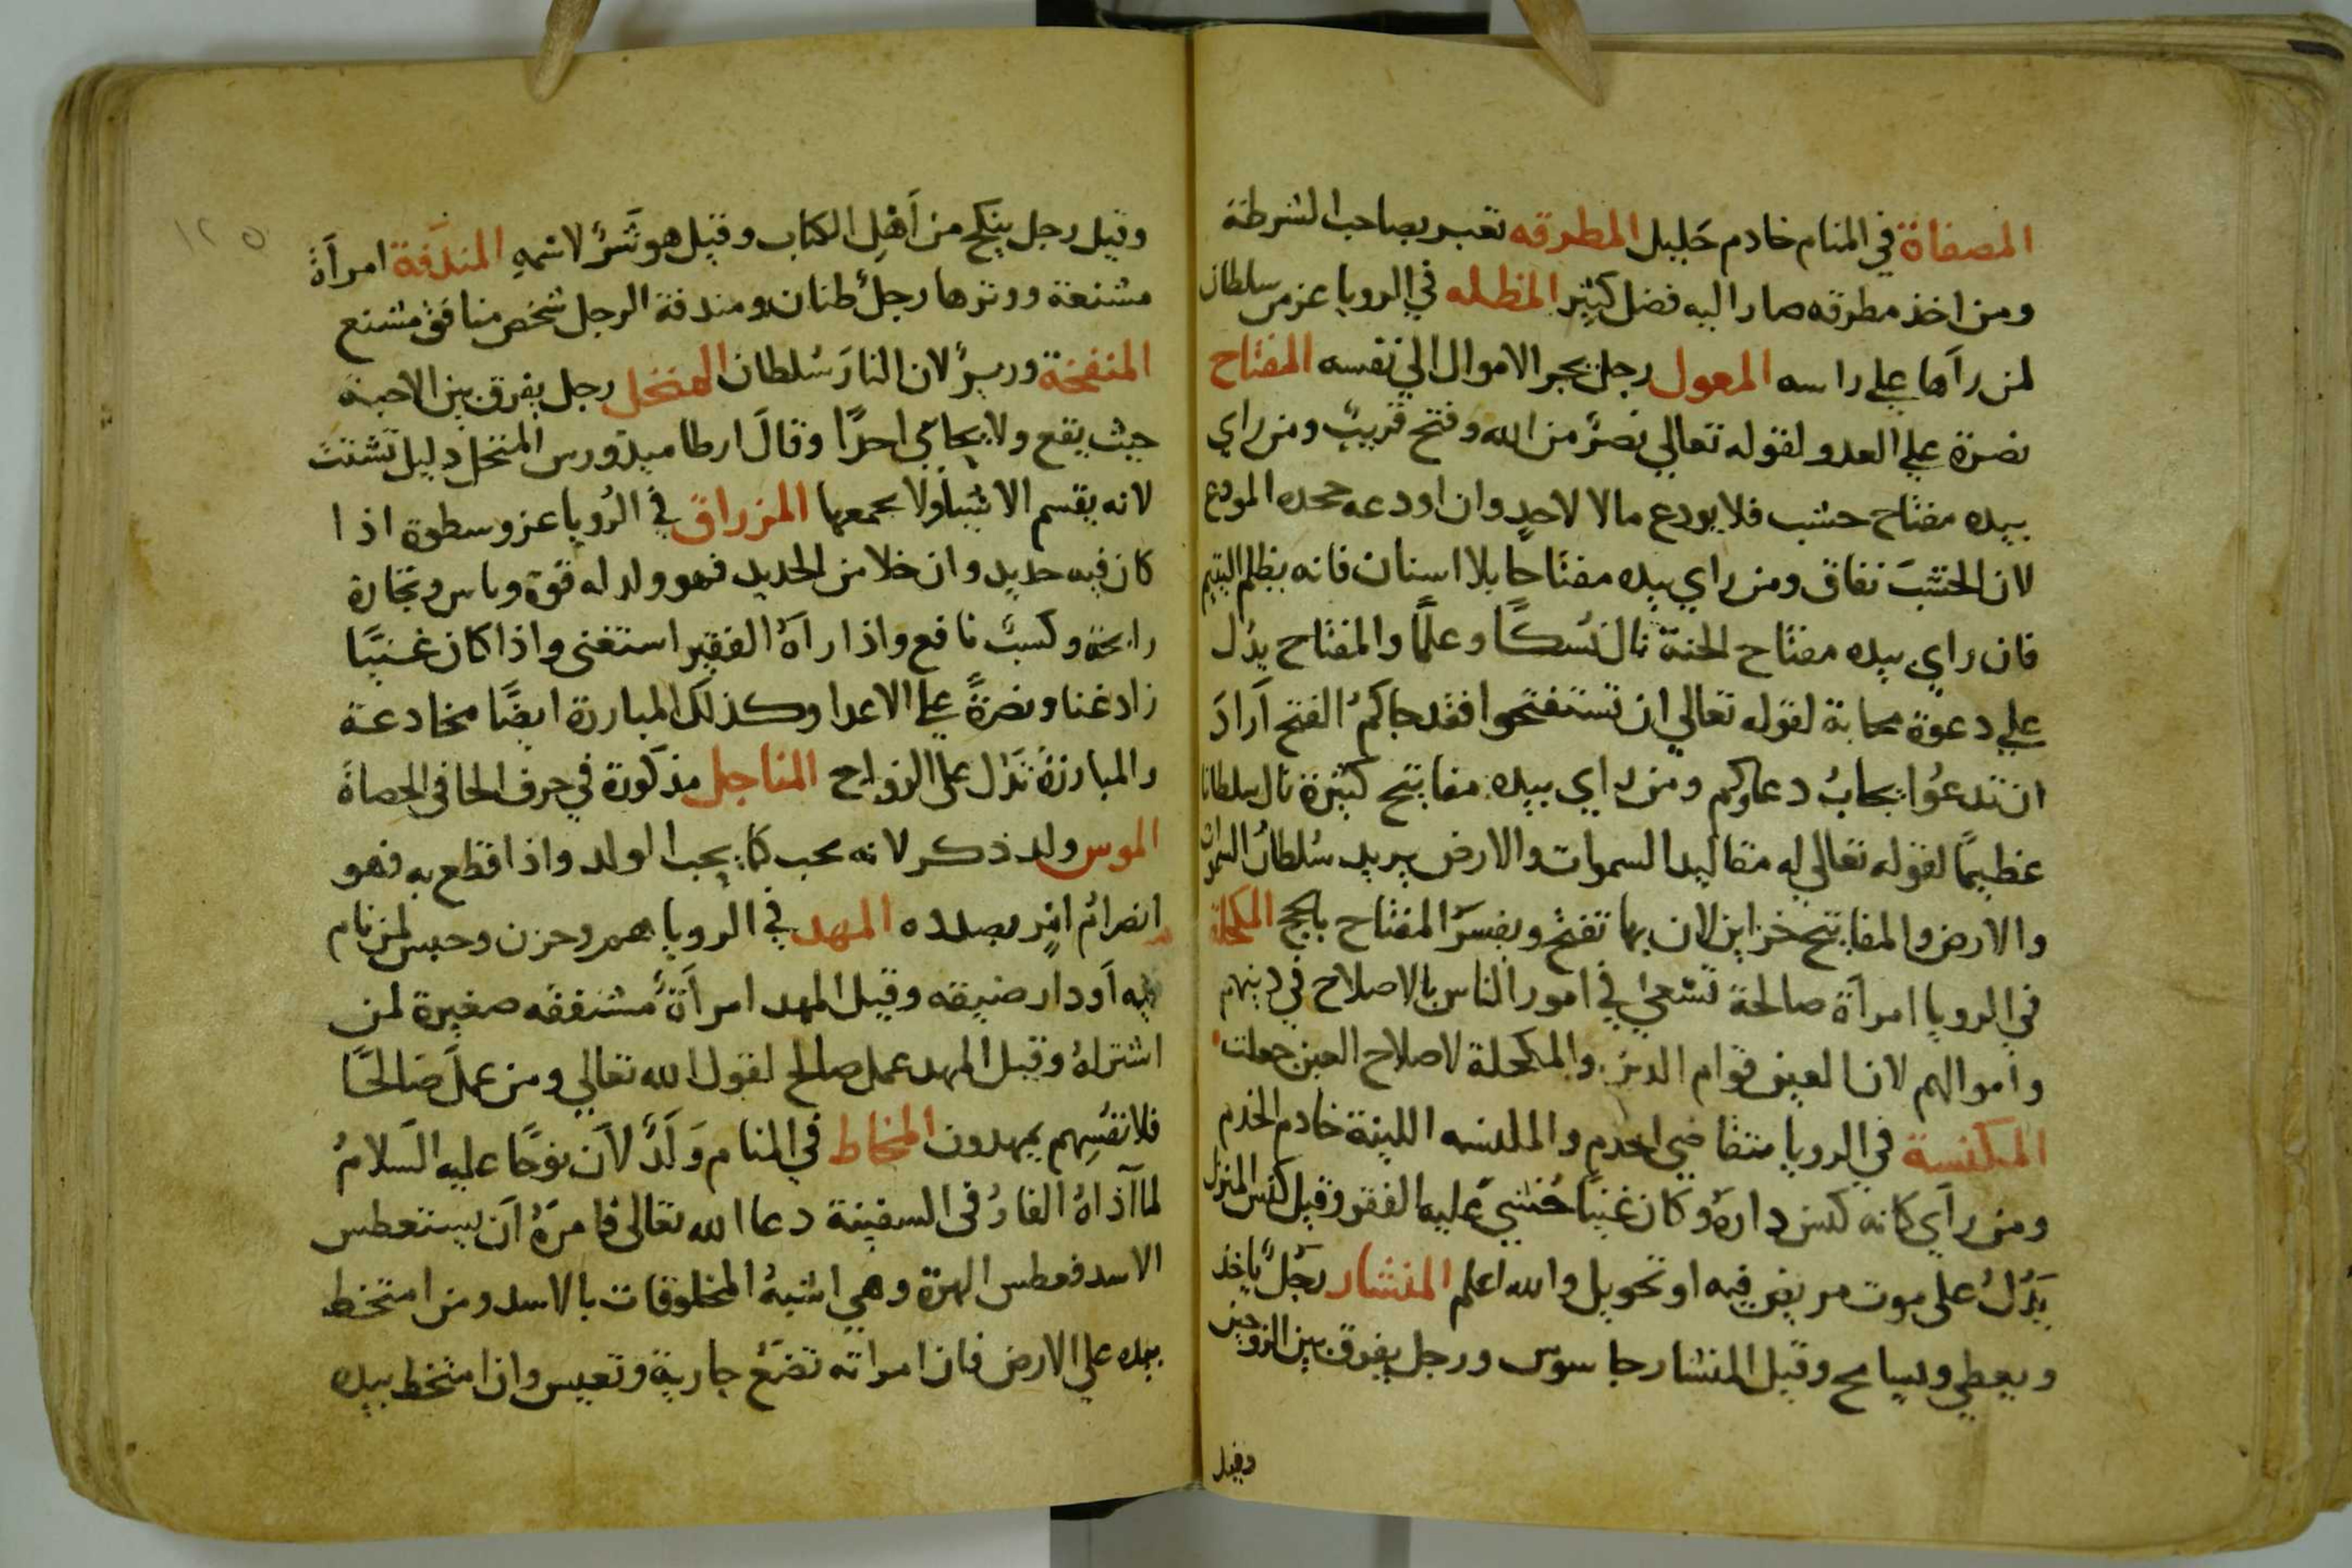 المصفاة في المنام خادم جليل المطرقه تعبر بصاحب الشرطة
ومن اخذ مطرقه صار اليه فضل كثير المظله في الرويا عز من سلطان
لمن رآها علي راسه المعول رجل يجر الاموال الي نفسه المفتاح
نصرة علي العدو لقوله تعالي نصرٌ من الله وفتح قريبٌ ومن راي
بيده مفتاح خشب فلا يودع مالا لاحدٍ وان اودعه جحده المودع
لان الخشبَ نفاق ومن راي بيده مفتاحا بلا اسنان فانه يظلم اليتيم
فان راي بيده مفتاح الجنة نال نُسكًا وعلمًا والمفتاح يدُل
علي دعوة مجابة لقوله تعالي ان تستفتحوا فقد جاكمُ الفتح اَرادَ
ان تدعُوا يجابُ دعاوكم ومن راي بيده مفاتيح كثيرة نال سلطانا
عظيمًا لقوله تعالي له مقاليد السموات والارض يريد سُلطانُ السموات
والارض والمفاتيح خزاين لان بها تفتح ويفسرَ المفتاح بالحج المكحلة
في الرويا امرآة صالحة تسْعيٰ في امور الناس بالاصلاح في دينهم
وأموالهم لان العين قوام الدين والمكحلة لاصلاح العين جعلت
المكنسة في الرويا متقاضي اخدم والمكنسه اللينة خادم الخدم
ومن رآي كانه كنس دارهُ وكان غنيًا خُشي عليه الفقر وقيل كنس المنزل
يَدُلُ علي موت مريض فيه او تحويل والله اعلم المنشار رجُلٌ ياخذ
ويعطي ويسامح وقيل المنشار جاسوس ورجل يفرق بين الزوجين
وقيل
١٢٥
وقيل رجل ينكح من اَهْلِ الكتاب وقيل هو شَرٌ لاسمهِ المندَفة امرآةٌ
مشنعة ووترها رجلٌ طنان ومندفة الرجل شخص منافق مشنع
المنفخة وزيرٌ لان النارَ سُلطان المنخل رجل يفرق بين الاحبة
حيث يقع ولا يحابي احدًا وقالَ ارطاميدورس المنخل دليل تشتت
لانه يقسم الاشيا ولا يجمعها المزراق في الرُويا عز وسطوة اذا
كان فيه حديد وان خلا من الحديد فهو ولد له قوة وباس وتجارة
رابحة وكسبٌ نافع واذا رآهُ الفقير استغنى واذا كان غنيًا
زاد غنا ونصرةً علي الاعدا وكذلك المبارزة ايضًا مخادعة
والمبارزة تدَل على الزواج المناجل مذكورة في حرف الحا في الحصاة
الموس ولد ذكر لانه يحب كما يحب الولد واذا قطع به فهو
انصرامُ امرٍ بصدده المهد في الرويا هم وحزن وحبس لمن نام
فيه اَو دار ضيقه وقيل المهد امرآةٌ مشفقه صغيرة لمن
اشتراهُ وقيل المهد عمل صالح لقول الله تعالي ومن عملَ صَالحًا
فلانفُسِهم يمهدون المخاط في المنام وَلَدٌ لاَن نوحًا عليه السَلامُ
لما آذاهُ الفارُ في السفينة دعا الله تعالى فامرَهُ اَن يستعطس
الاسد فعطس الهرة وهي اشبهُ المخلوقات بالاسد ومن امتخط
بيده علي الارض فان امراته تضعُ جارية وتعيس وان امتخط بيده